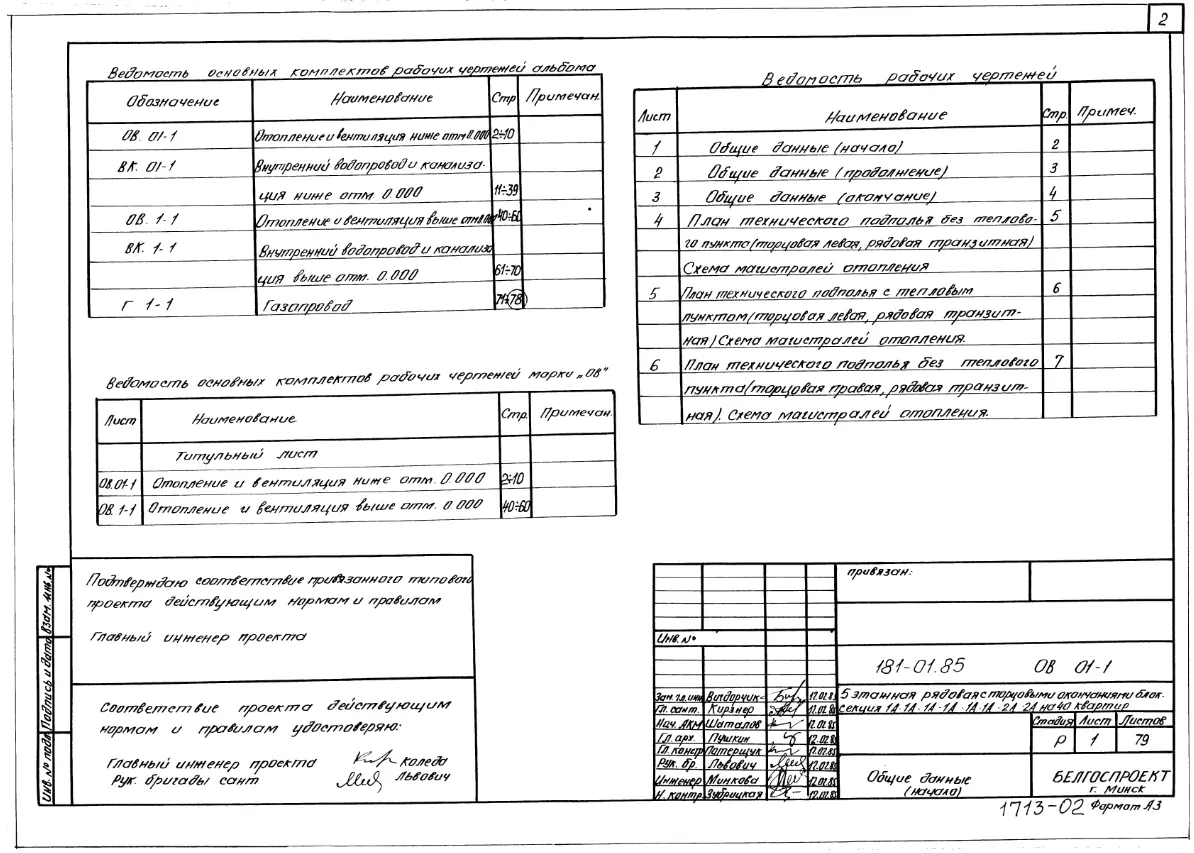 2
Ведомость основных комплектов рабочих чертежей альбома
Обозначение Наименование Стр Примечан.
ОВ. 01-1 Отопление и вентиляция ниже отм 0.000 2÷10
ВК. 01-1 Внутренний водопровод и канализа-
ция ниже отм. 0.000 11÷39
ОВ. 1-1 Отопление и вентиляция выше отм. 40÷60
ВК. 1-1 Внутренний водопровод и канализа
ция выше отм. 0.000 61÷70
Г 1-1 Газопровод 71÷78
Ведомость рабочих чертежей
Лист Наименование Стр. Примеч.
1 Общие данные (начало) 2
2 Общие данные (продолжение) 3
3 Общие данные (окончание) 4
4 План технического подполья без теплово- 5
го пункта (торцовая левая, рядовая транзитная)
Схема магистралей отопления
5 План технического подполья с тепловым 6
пунктом (торцовая левая, рядовая транзит-
ная) Схема магистралей отопления.
6 План технического подполья без теплового 7
пункта (торцовая правая, рядовая транзит-
ная). Схема магистралей отопления.
Ведомость основных комплектов рабочих чертежей марки „ОВ"
Лист Наименование Стр. Примечан.
Титульный лист
ОВ.01-1 Отопление и вентиляция ниже отм. 0.000 2÷10
ОВ. 1-1 Отопление и вентиляция выше отм. 0.000 40÷60
Подтверждаю соответствие привязанного типового
проекта действующим нормам и правилам
Главный инженер проекта
Соответствие проекта действующим
нормам и правилам удостоверяю:
Главный инженер проекта Коледа
Рук. бригады сант Львович
Инв. № подл. Подпись и дата Взам. инв. №
Привязан:
Инв. №
181-01.85 ОВ 01-1
Зам. гл. инж Вигдорчик 12.02.85
Гл. сант. Кирзнер 12.02.85
Нач. АКМ Шаталов 12.02.85
Гл. арх. Пушкин 12.02.85
Гл. констр Потерщук 12.02.85
Рук. бр. Львович 12.02.85
Инженер Минкова 12.02.85
Н. контр. Зубрицкая 12.02.85
5 этажная рядовая с торцовыми окончаниями блок-
секция 1А-1А-1А-1А-1А-1А-2А-2А на 40 квартир
Стадия Лист Листов
Р 1 79
Общие данные
(начало)
БЕЛГОСПРОЕКТ
г. Минск
1713-02 Формат А3